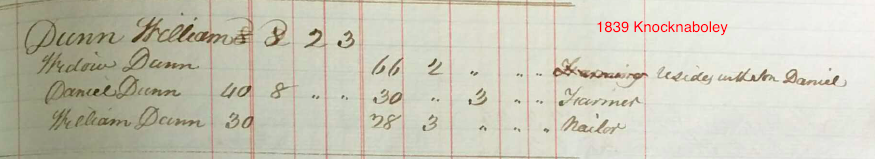 1839 Knocknaboley
Dunn William 8 8 2 3
Widow Dunn 66 2 " " " Farming resides with son Daniel
Daniel Dunn 40 8 " " 30 " 3 " " Farmer
William Dunn 30 28 3 " " " Nailor